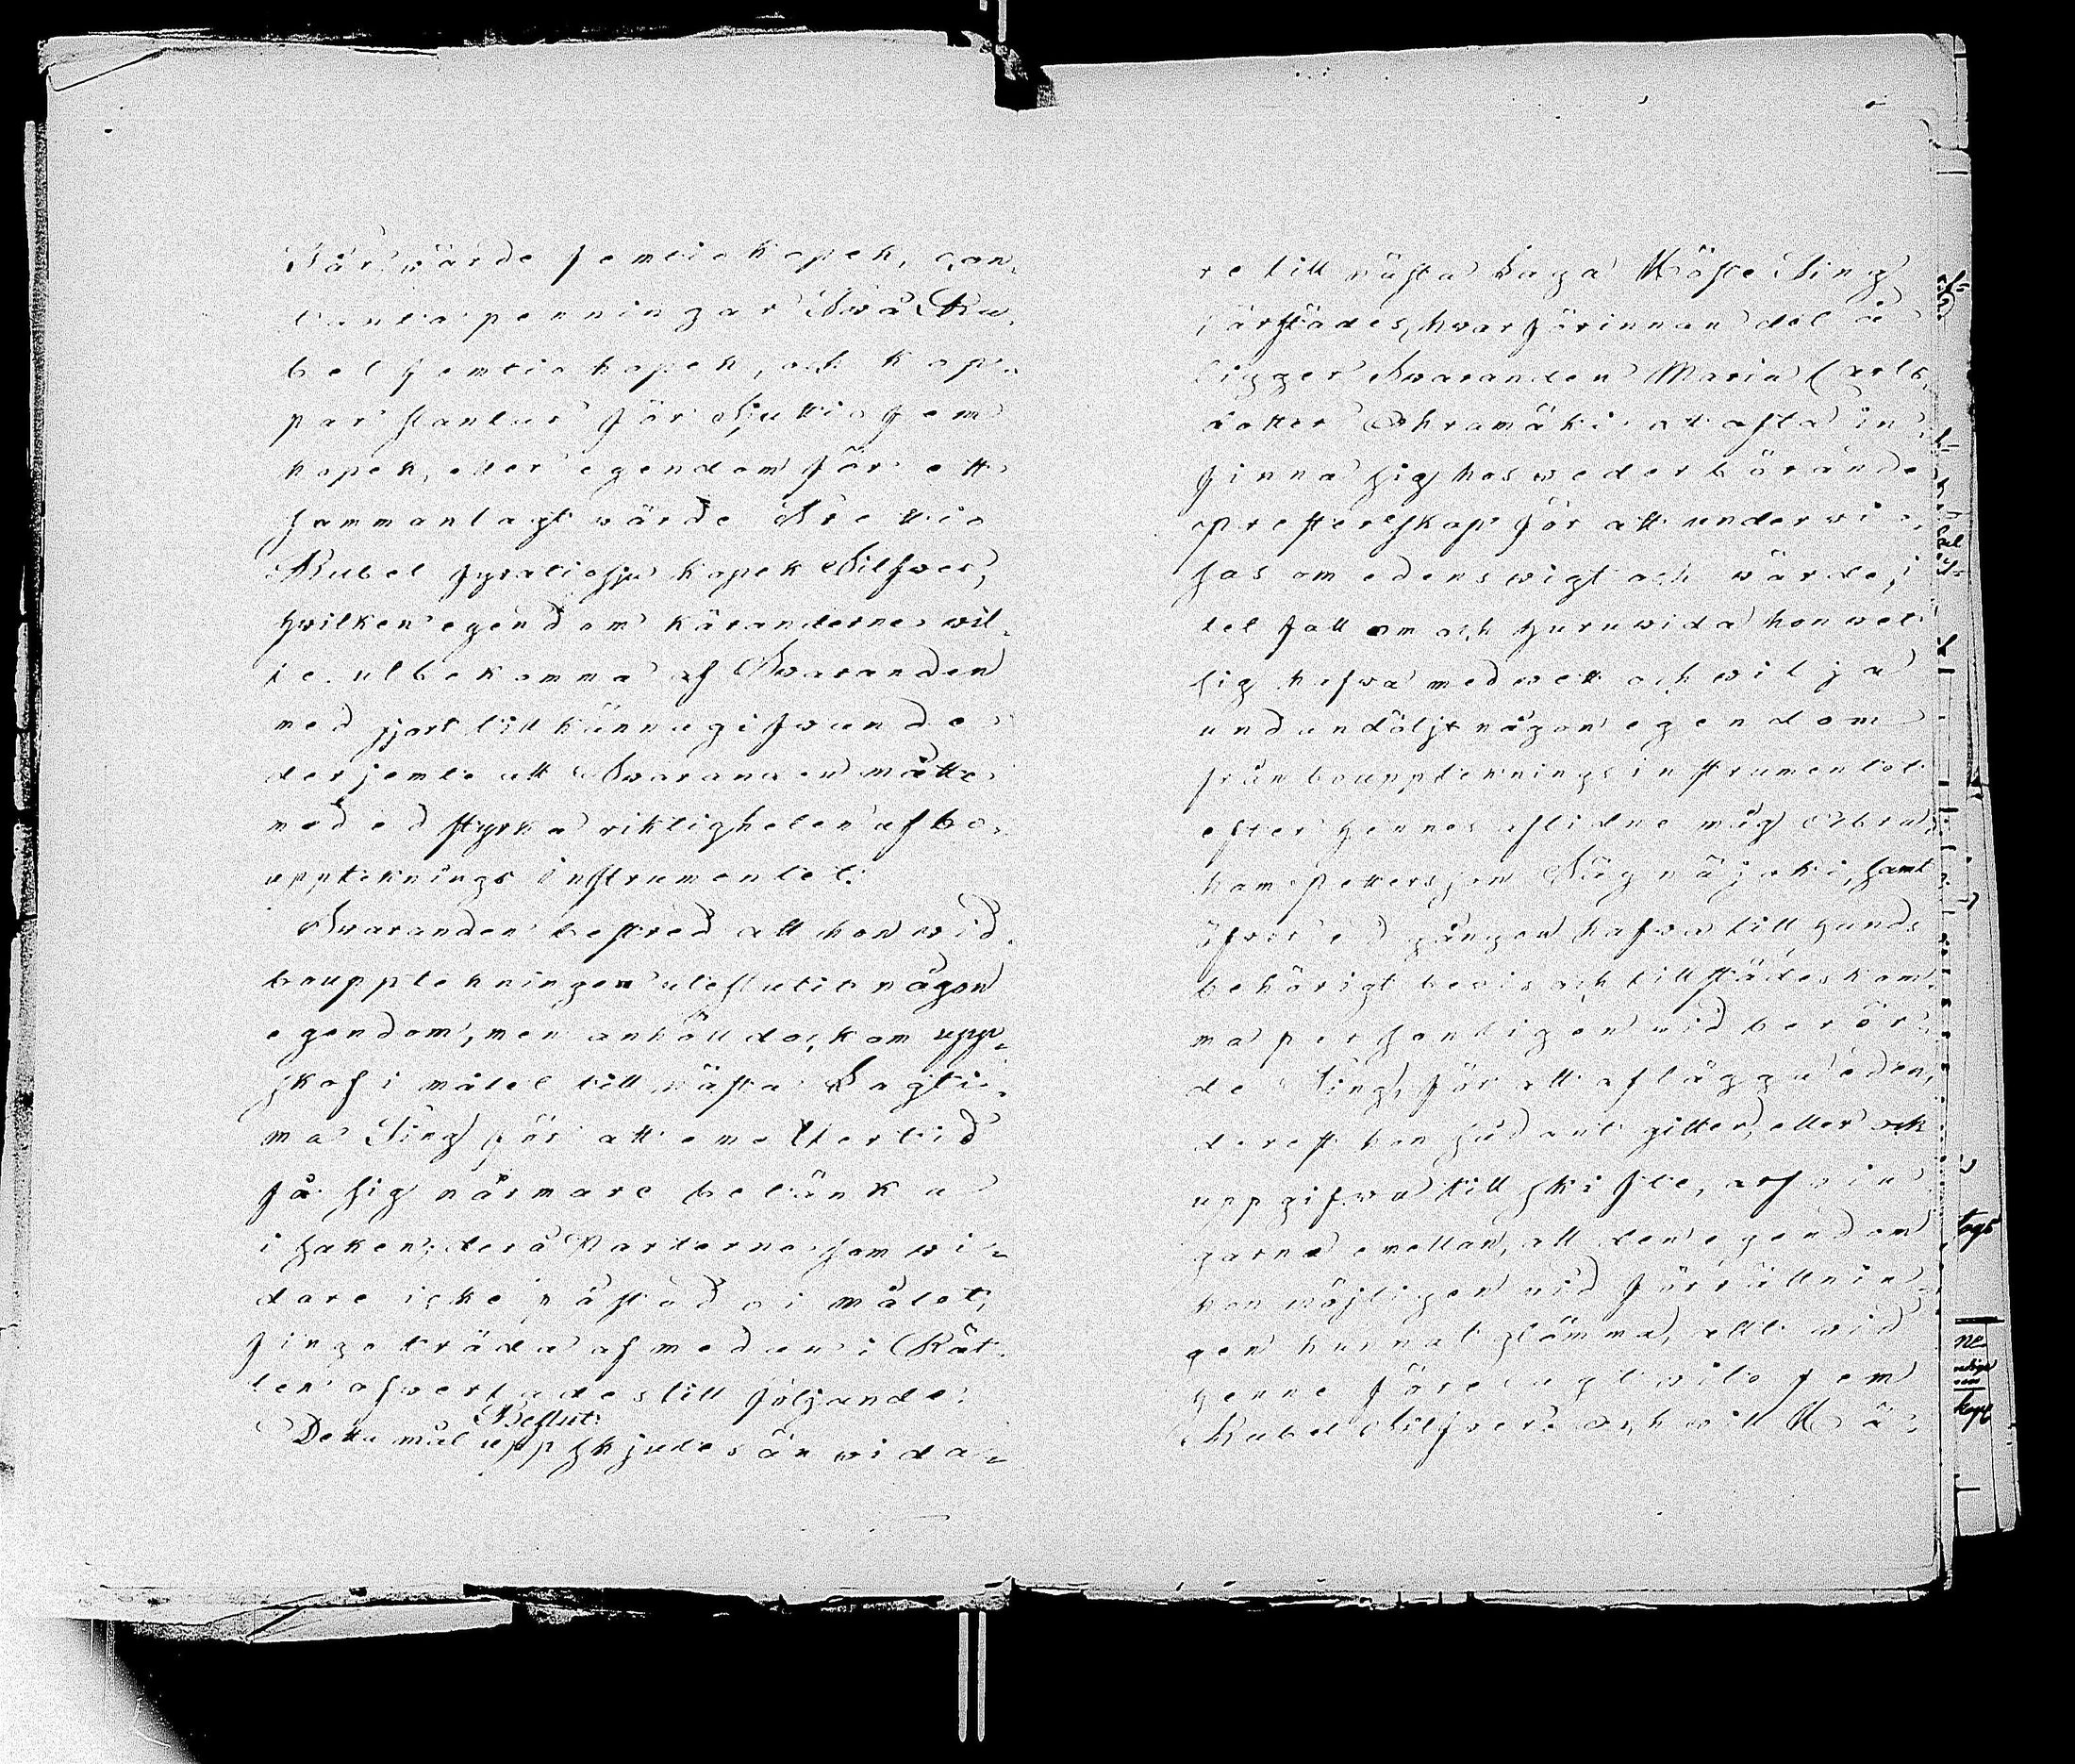 Får wärde femtio kopek, con-
tanta penningar Två Ru-
bel femtio kopek, och kop-
par slantar för Sjuttio fem
kopek, eller egendom för ett
sammanlagt wärde Trettio
Rubel fyratiosju kopek Silfwer,
hvilken egendom Käranderne wil-
je utbekomma af Swaranden
med gjort tillkännagifwande
derjemte att Swaranden måtte
med ed styrka riktigheten af bo-
uppteknings instrumentet.
Swaranden bestred att hon wid
boupptekningen uteslutit någon
egendom, men anhöll dock om upp-
skof i målet till nästa Lagti-
ma Ting för att emellertid
få sig närmare betänka
i saken; derå Parterne som wi-
dare icke påstodo i målet,
finge träda af medan i Rät-
ten öfwerlades till följande
Beslut:
Detta mål uppskjutes än wida-
re till nästa Laga Höste Ting
härstädes, hvarförinnan det å-
ligger Swaranden Maria Carls-
dotter att ofta in-
finna sig hos wederbörande
presterskap för att underwi-
sas om edens wigt och wärde, i
det fall om och huruwida hon wet
sig hafwa med wett och wilja
undandöljt någon egendom
från bouppteknings instrumentet
efter hennes aflidne måg Abra-
ham Pettersson samt
öfwer ed gången hafwa till hands
behörigt bewis och tillstädeskom-
ma personligen wid berör-
de Ting, för att aflägga eden,
derest hon sådant gitter, eller ock
uppgifwa till skifte, arfwin-
garne emellan, all den egendom
hon möjligen wid förrättnin-
gen kunnat glömma, allt wid
henne förelagt wite fem
Rubel Silfwer. Och will Hä-